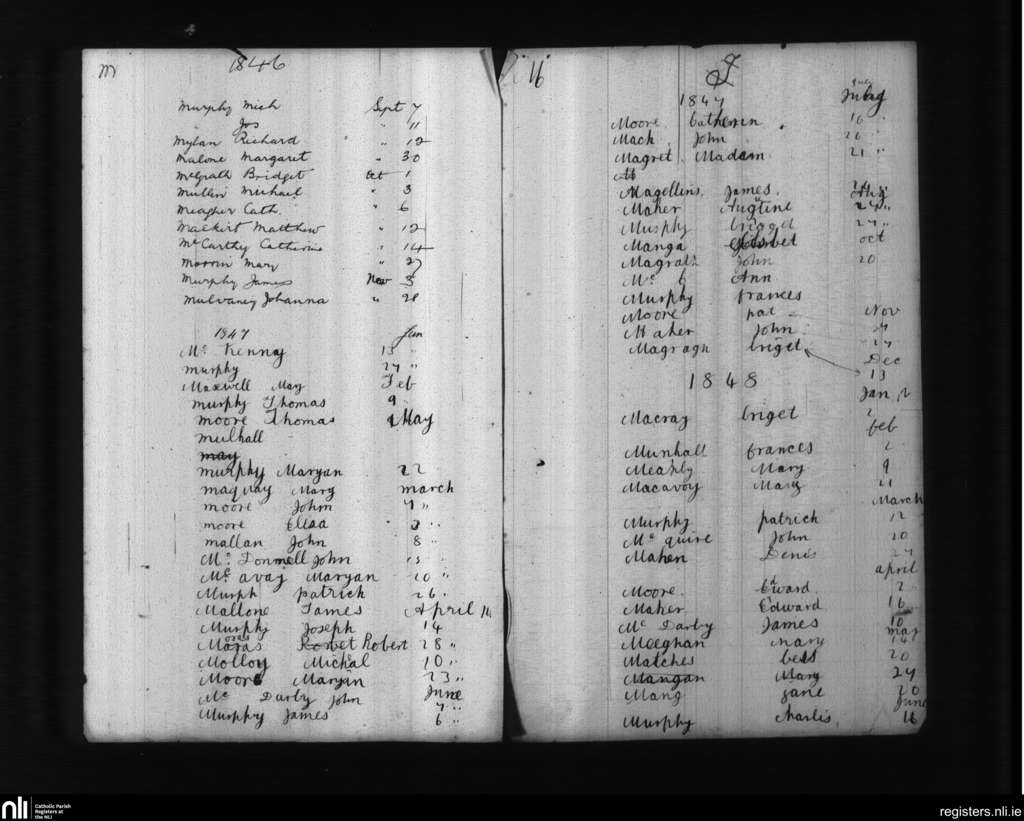 M 1846
Murphy Mich Sept 7
" Jos " 11
Mylan Richard " " 12
Malone Margaret " 30
McGrath Bridget Oct 1
Mullin Michael " 3
Meagher Cath. " 6
Malkirt Matthew " 12
McCarthy Catherine " 14
Morrin Mary " 27
Murphy James Nov 3
Mulvaney Johanna " 28
1847 Jan
Mc Kenny 13 "
murphy 27 "
Maxwell May Feb
murphy Thomas 9
moore Thomas May
mulhall
may
murphy Maryan 22
maquay Mary march
moore John 7 "
moore Elisa "
mallan John 8 "
Mc Donnell John 13 "
Mc avay Maryan 20 "
Murph patrick 26 "
Mallone James April 11
Murphy Joseph 14
Robert 28 "
Molloy Michal 10 "
Moore Maryan 23 "
Mc Darby John June
7 "
Murphy James 6 "
16
1847 July
Moore Catherin 16 "
Mack John 26 "
Magret Madam 21 "
Magellins James Aug
Maher Augtine 24 "
Murphy briget 27 "
Manga oct
Magrath John 20
Mc C Ann
Murphy frances
Moore pat Nov
Maher John
Magragh briget 27
Dec
13
1848
Jan 2
Macray briget 2
feb
Munhall frances 2
Meahly Mary 9
Macavoy Mary 11
March
Murphy patrick 12
Mc quire John 20
Mahen Denis 24
april
Moore Edward 2
Maher Edward 16
Mc Darby James 10
may
Meeghan mary 14
Matches bess 20
Mangan Mary 24
Mang jane 20
June
Murphy charlis 16
nli
Catholic Parish
Registers at
the NLI
registers.nli.ie